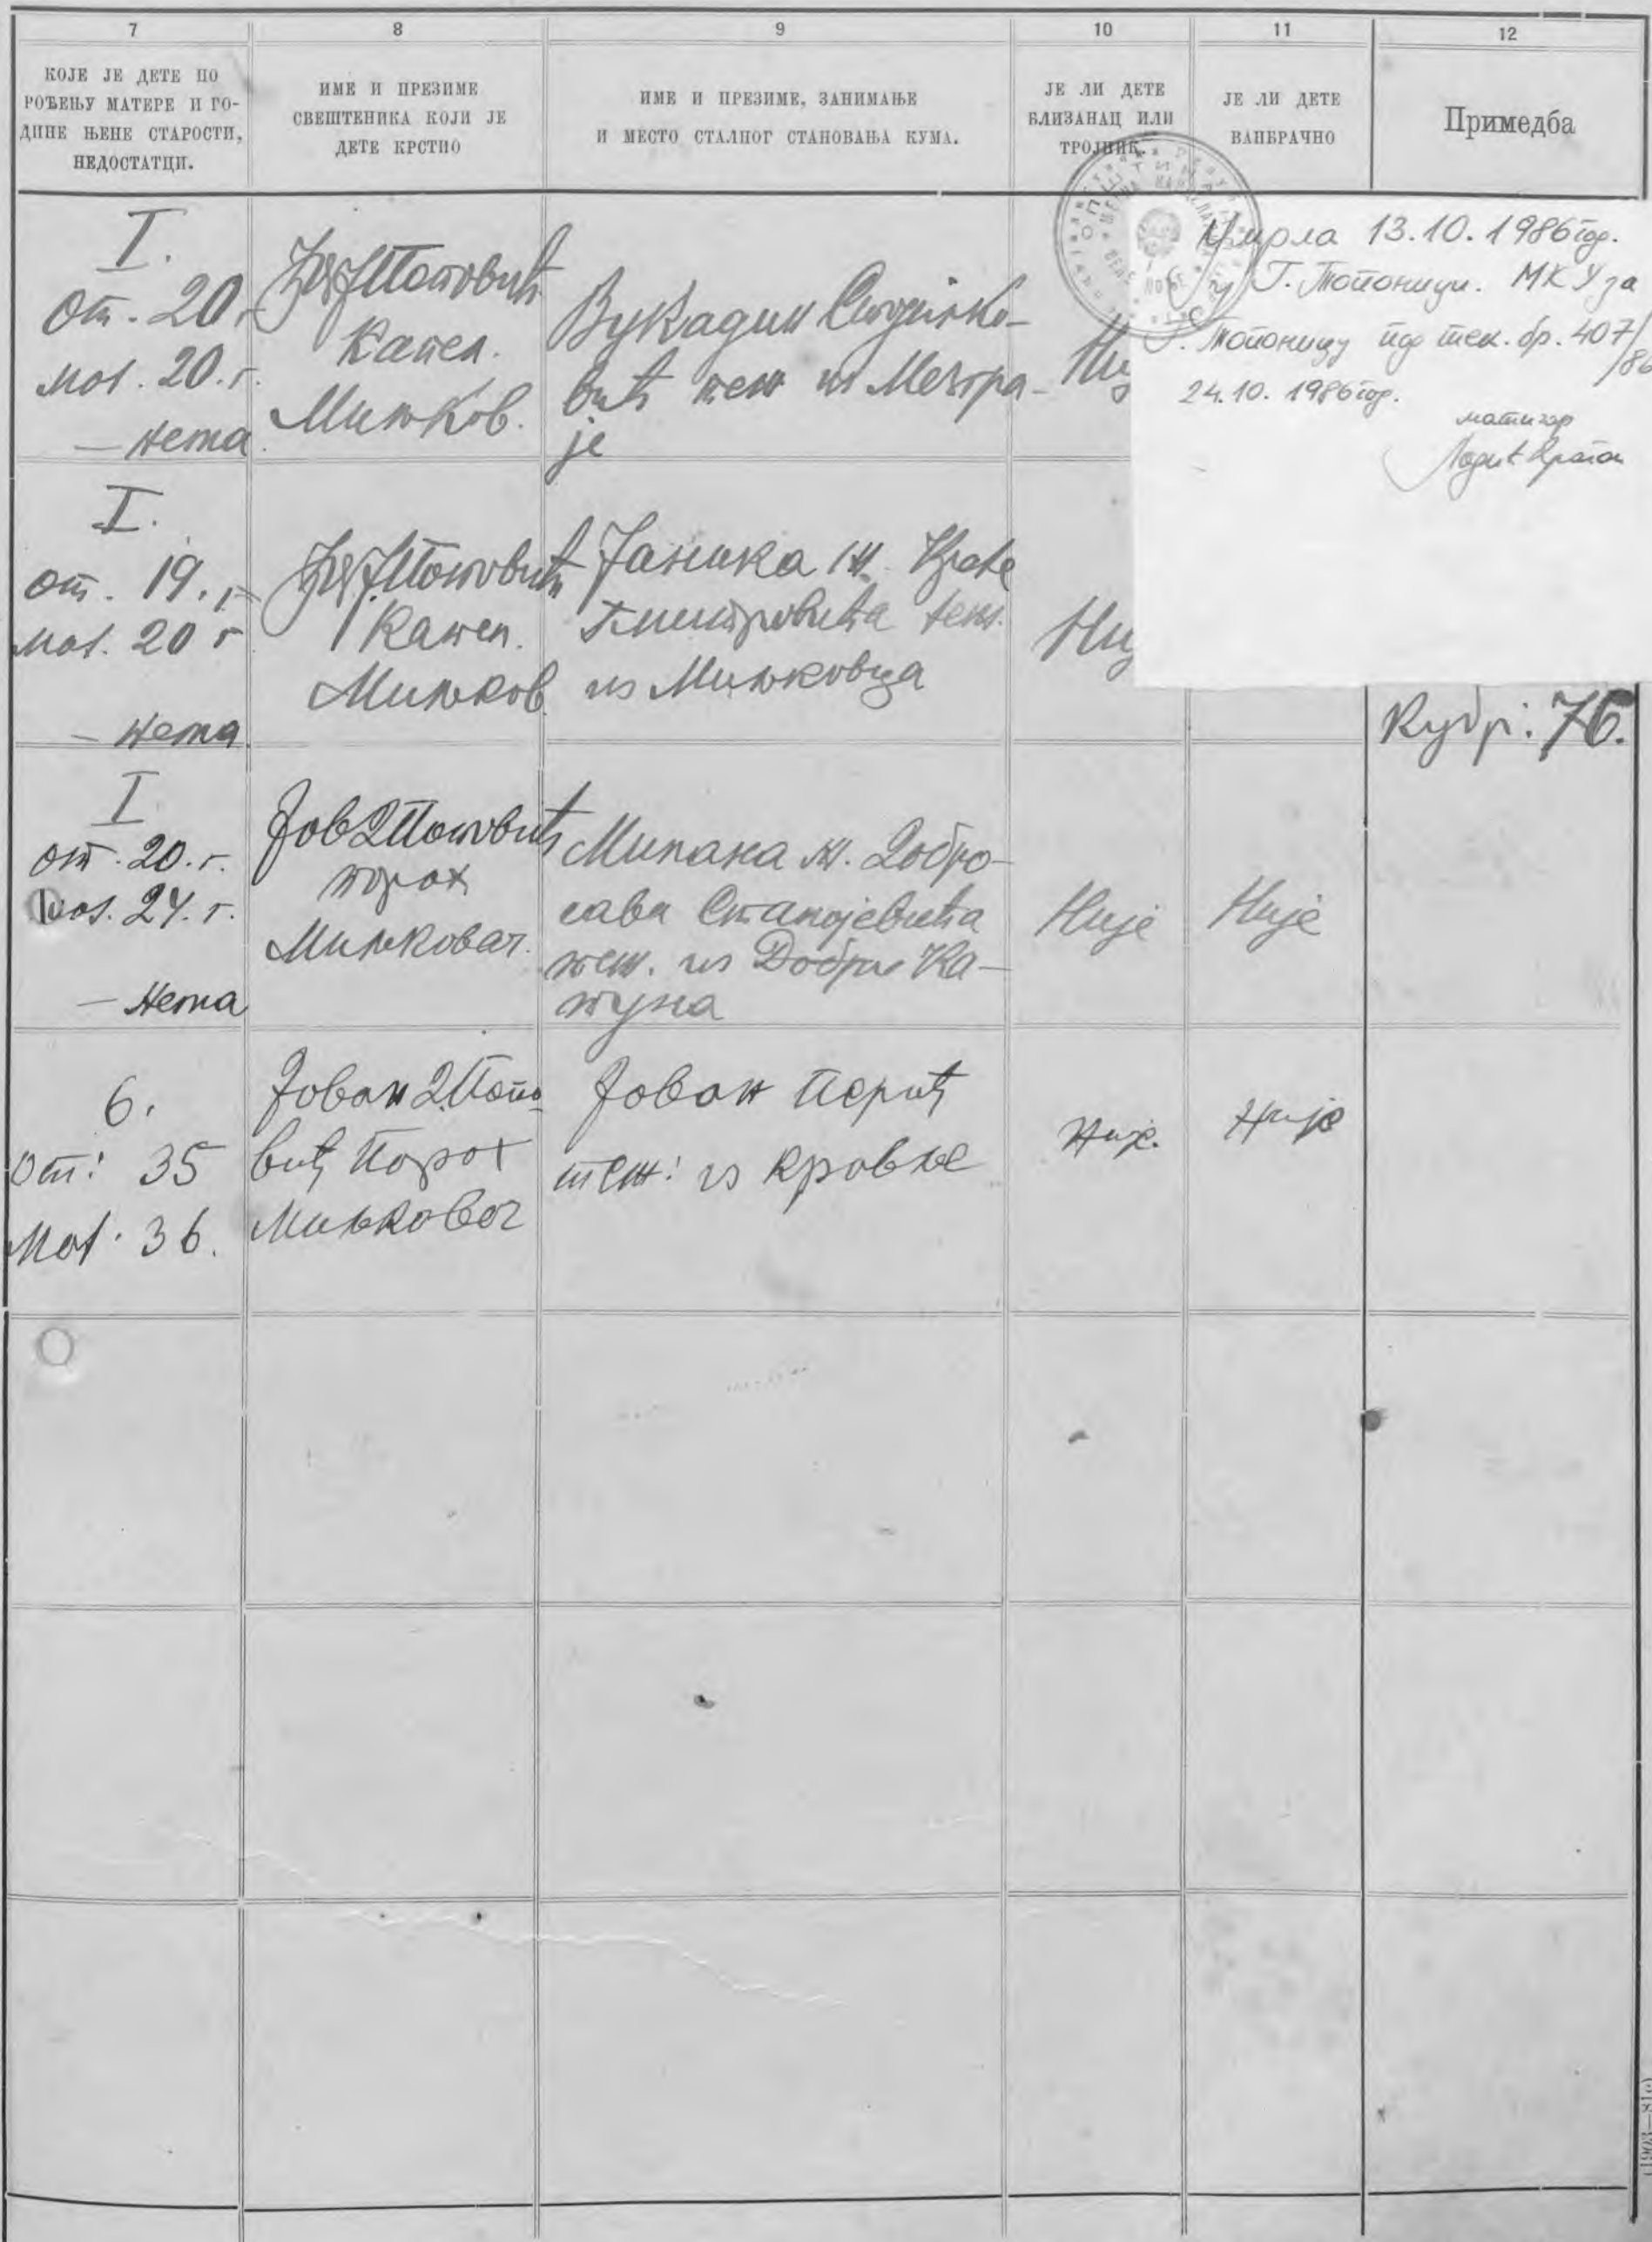 7
8
9
10
11
12
КОЈЕ ЈЕ ДЕТЕ ПО
РОЂЕЊУ МАТЕРЕ И ГО-
ДИНЕ ЊЕНЕ СТАРОСТИ,
НЕДОСТАТЦИ.
ИМЕ И ПРЕЗИМЕ
СВЕШТЕНИКА КОЈИ ЈЕ
ДЕТЕ КРСТИО
ИМЕ И ПРЕЗИМЕ, ЗАНИМАЊЕ
И МЕСТО СТАЛНОГ СТАНОВАЊА КУМА.
ЈЕ ЛИ ДЕТЕ
БЛИЗАНАЦ ИЛИ
ТРОЈНИК.
ЈЕ ЛИ ДЕТЕ
ВАНБРАЧНО
Примедба
I.
от. 20 г.
мат. 20. г.
— нема
Поповић
капел.
Миљков.
Вукадин
вић теж из Мезгра-
је
Ни
Умрла 13.10.1986 год.
у Г. Топоници. МКУ за
Г. Топоницу под тек. бр. 407/86
24.10.1986 год.
матичар
I.
от. 19. г.
мат. 20 г
— нема
Поповић
капел.
Миљков.
Јаника ж.
теж.
из Миљковца
Ни
Кубр: 76.
I
от. 20. г.
мат. 24. г.
— Нема
Јов Д Поповић
парох
Миљковач.
Милана ж. Добро-
сава Станојевића
теж. из Доњег Ка-
туна
Није
Није
6.
от: 35
мат: 36.
Јован Д. Попо-
вић парох
Миљковач
Јован Перић
теж: из Кравље
Није.
Није
(1903—81e)